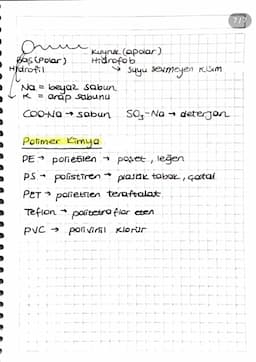 7/7
Kuyruk (apolar)
Baş (polar) Hidrofob
Hidrofil → Suyu sevmeyen kısım
Na = beyaz sabun
K = arap sabunu
COONa → sabun SO₃-Na → deterjan
Polimer Kimya
PE → polietilen → poşet, leğen
PS → polistiren → plastik tabak, çatal
PET → polietilen teraftalat
Teflon → politetraflor eten
PVC → polivinil klorür